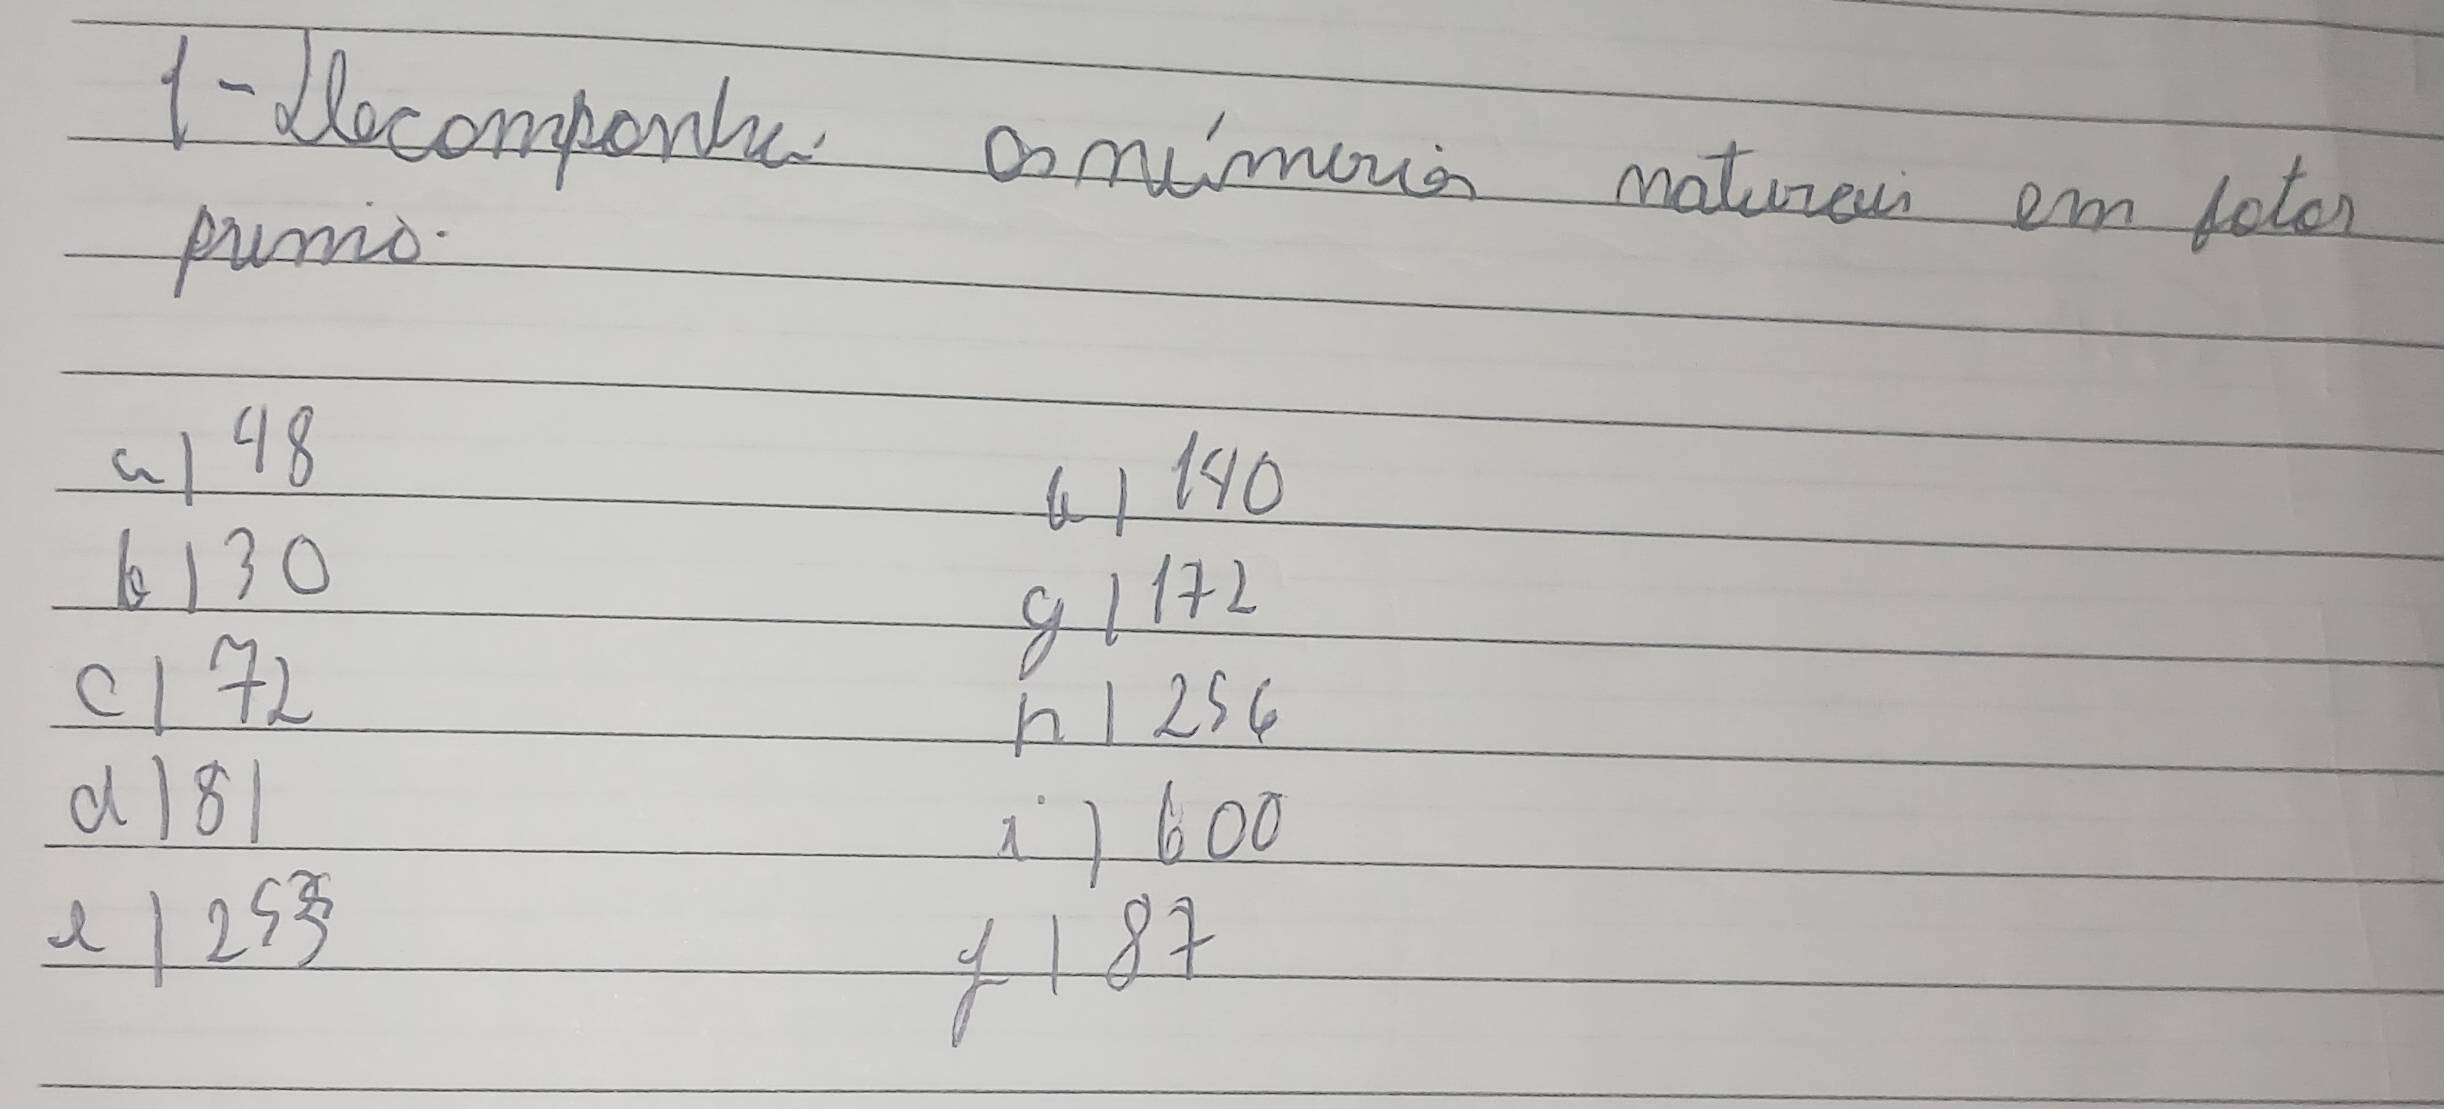 1- Decomponha os números naturais em fator
primo.
a) 48
b) 30
c) 72
d) 81
e) 253
6) 140
g) 172
h) 256
i) 600
j) 87